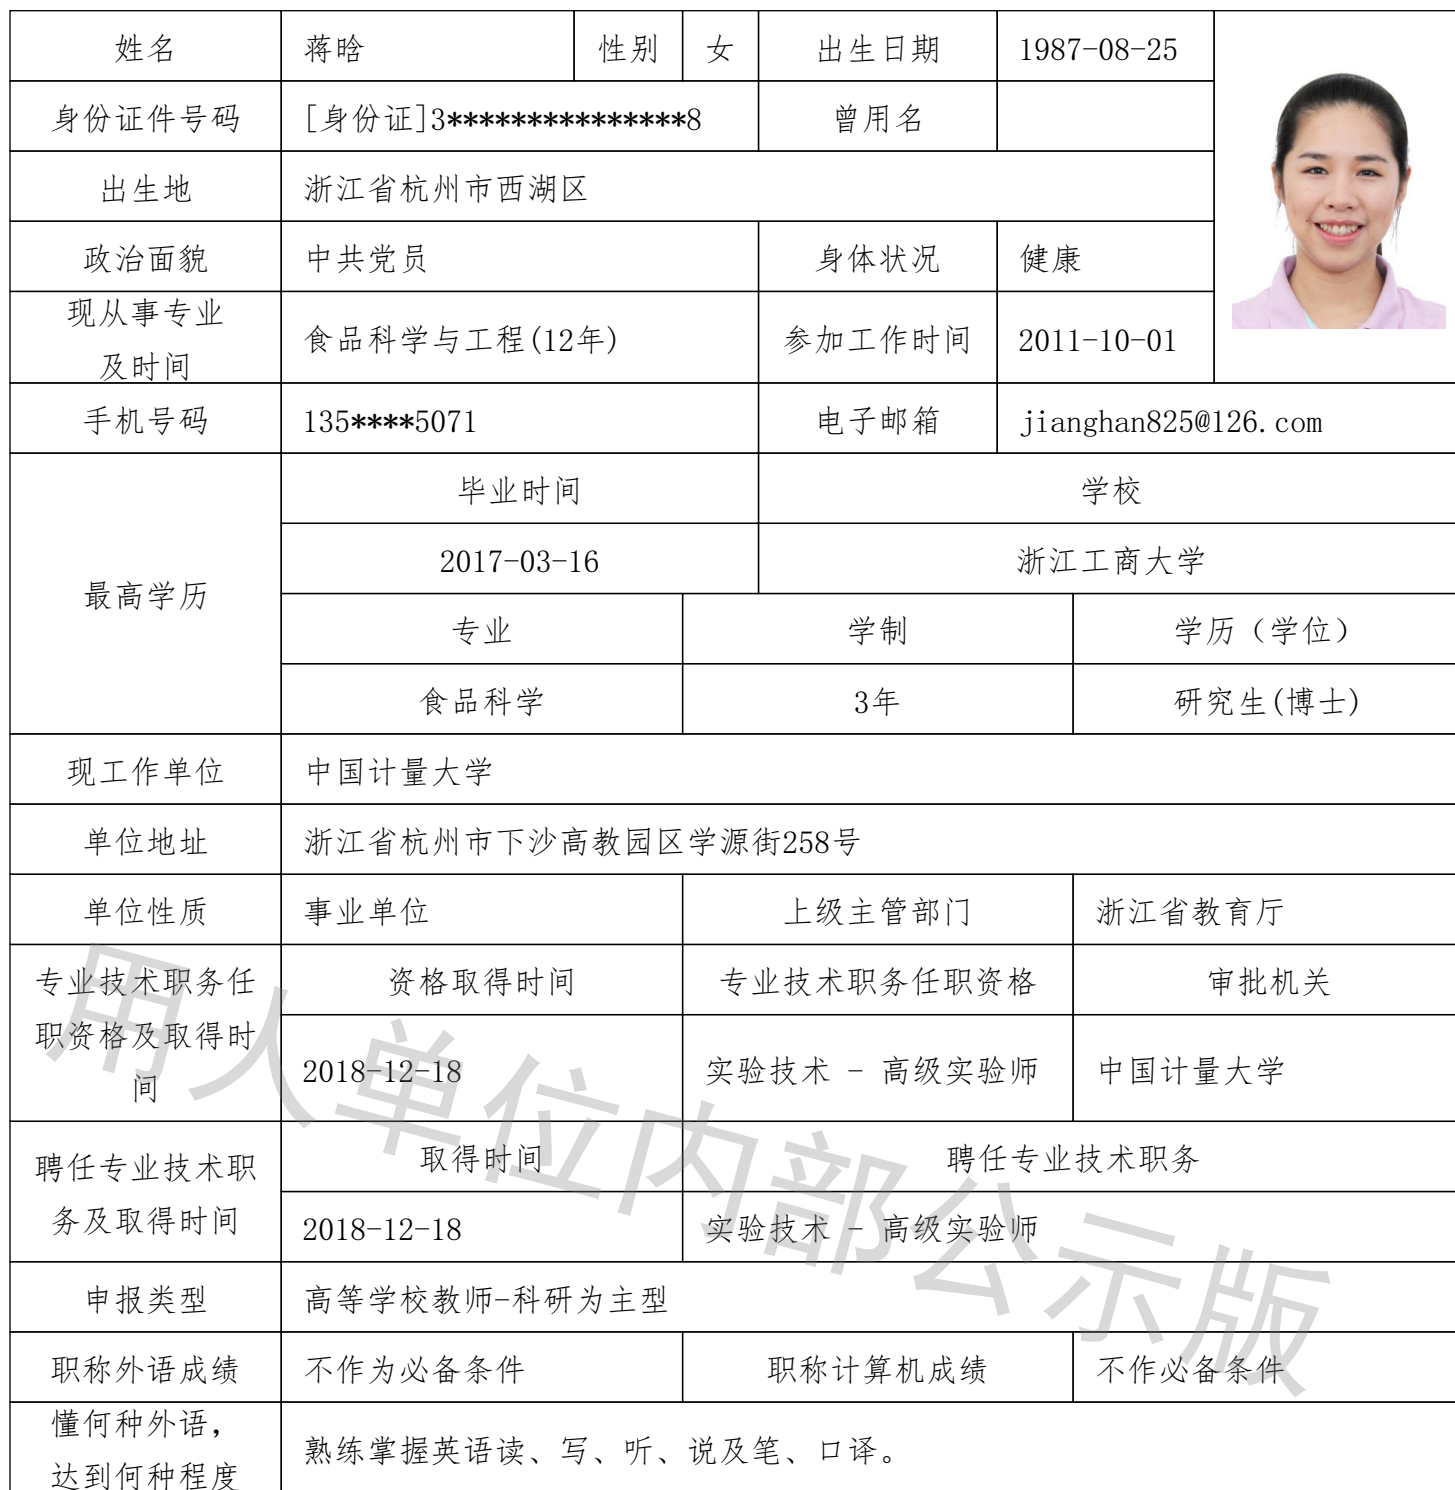 姓名 蒋晗 性别 女 出生日期 1987-08-25
身份证件号码 [身份证]3***************8 曾用名
出生地 浙江省杭州市西湖区
政治面貌 中共党员 身体状况 健康
现从事专业
及时间 食品科学与工程(12年) 参加工作时间 2011-10-01
手机号码 135****5071 电子邮箱 jianghan825@126.com
最高学历
毕业时间 学校
2017-03-16 浙江工商大学
专业 学制 学历（学位）
食品科学 3年 研究生(博士)
现工作单位 中国计量大学
单位地址 浙江省杭州市下沙高教园区学源街258号
单位性质 事业单位 上级主管部门 浙江省教育厅
专业技术职务任
职资格及取得时
间
资格取得时间 专业技术职务任职资格 审批机关
2018-12-18 实验技术 - 高级实验师 中国计量大学
聘任专业技术职
务及取得时间
取得时间 聘任专业技术职务
2018-12-18 实验技术 - 高级实验师
申报类型 高等学校教师-科研为主型
职称外语成绩 不作为必备条件 职称计算机成绩 不作必备条件
懂何种外语，
达到何种程度 熟练掌握英语读、写、听、说及笔、口译。
用人单位内部公示版